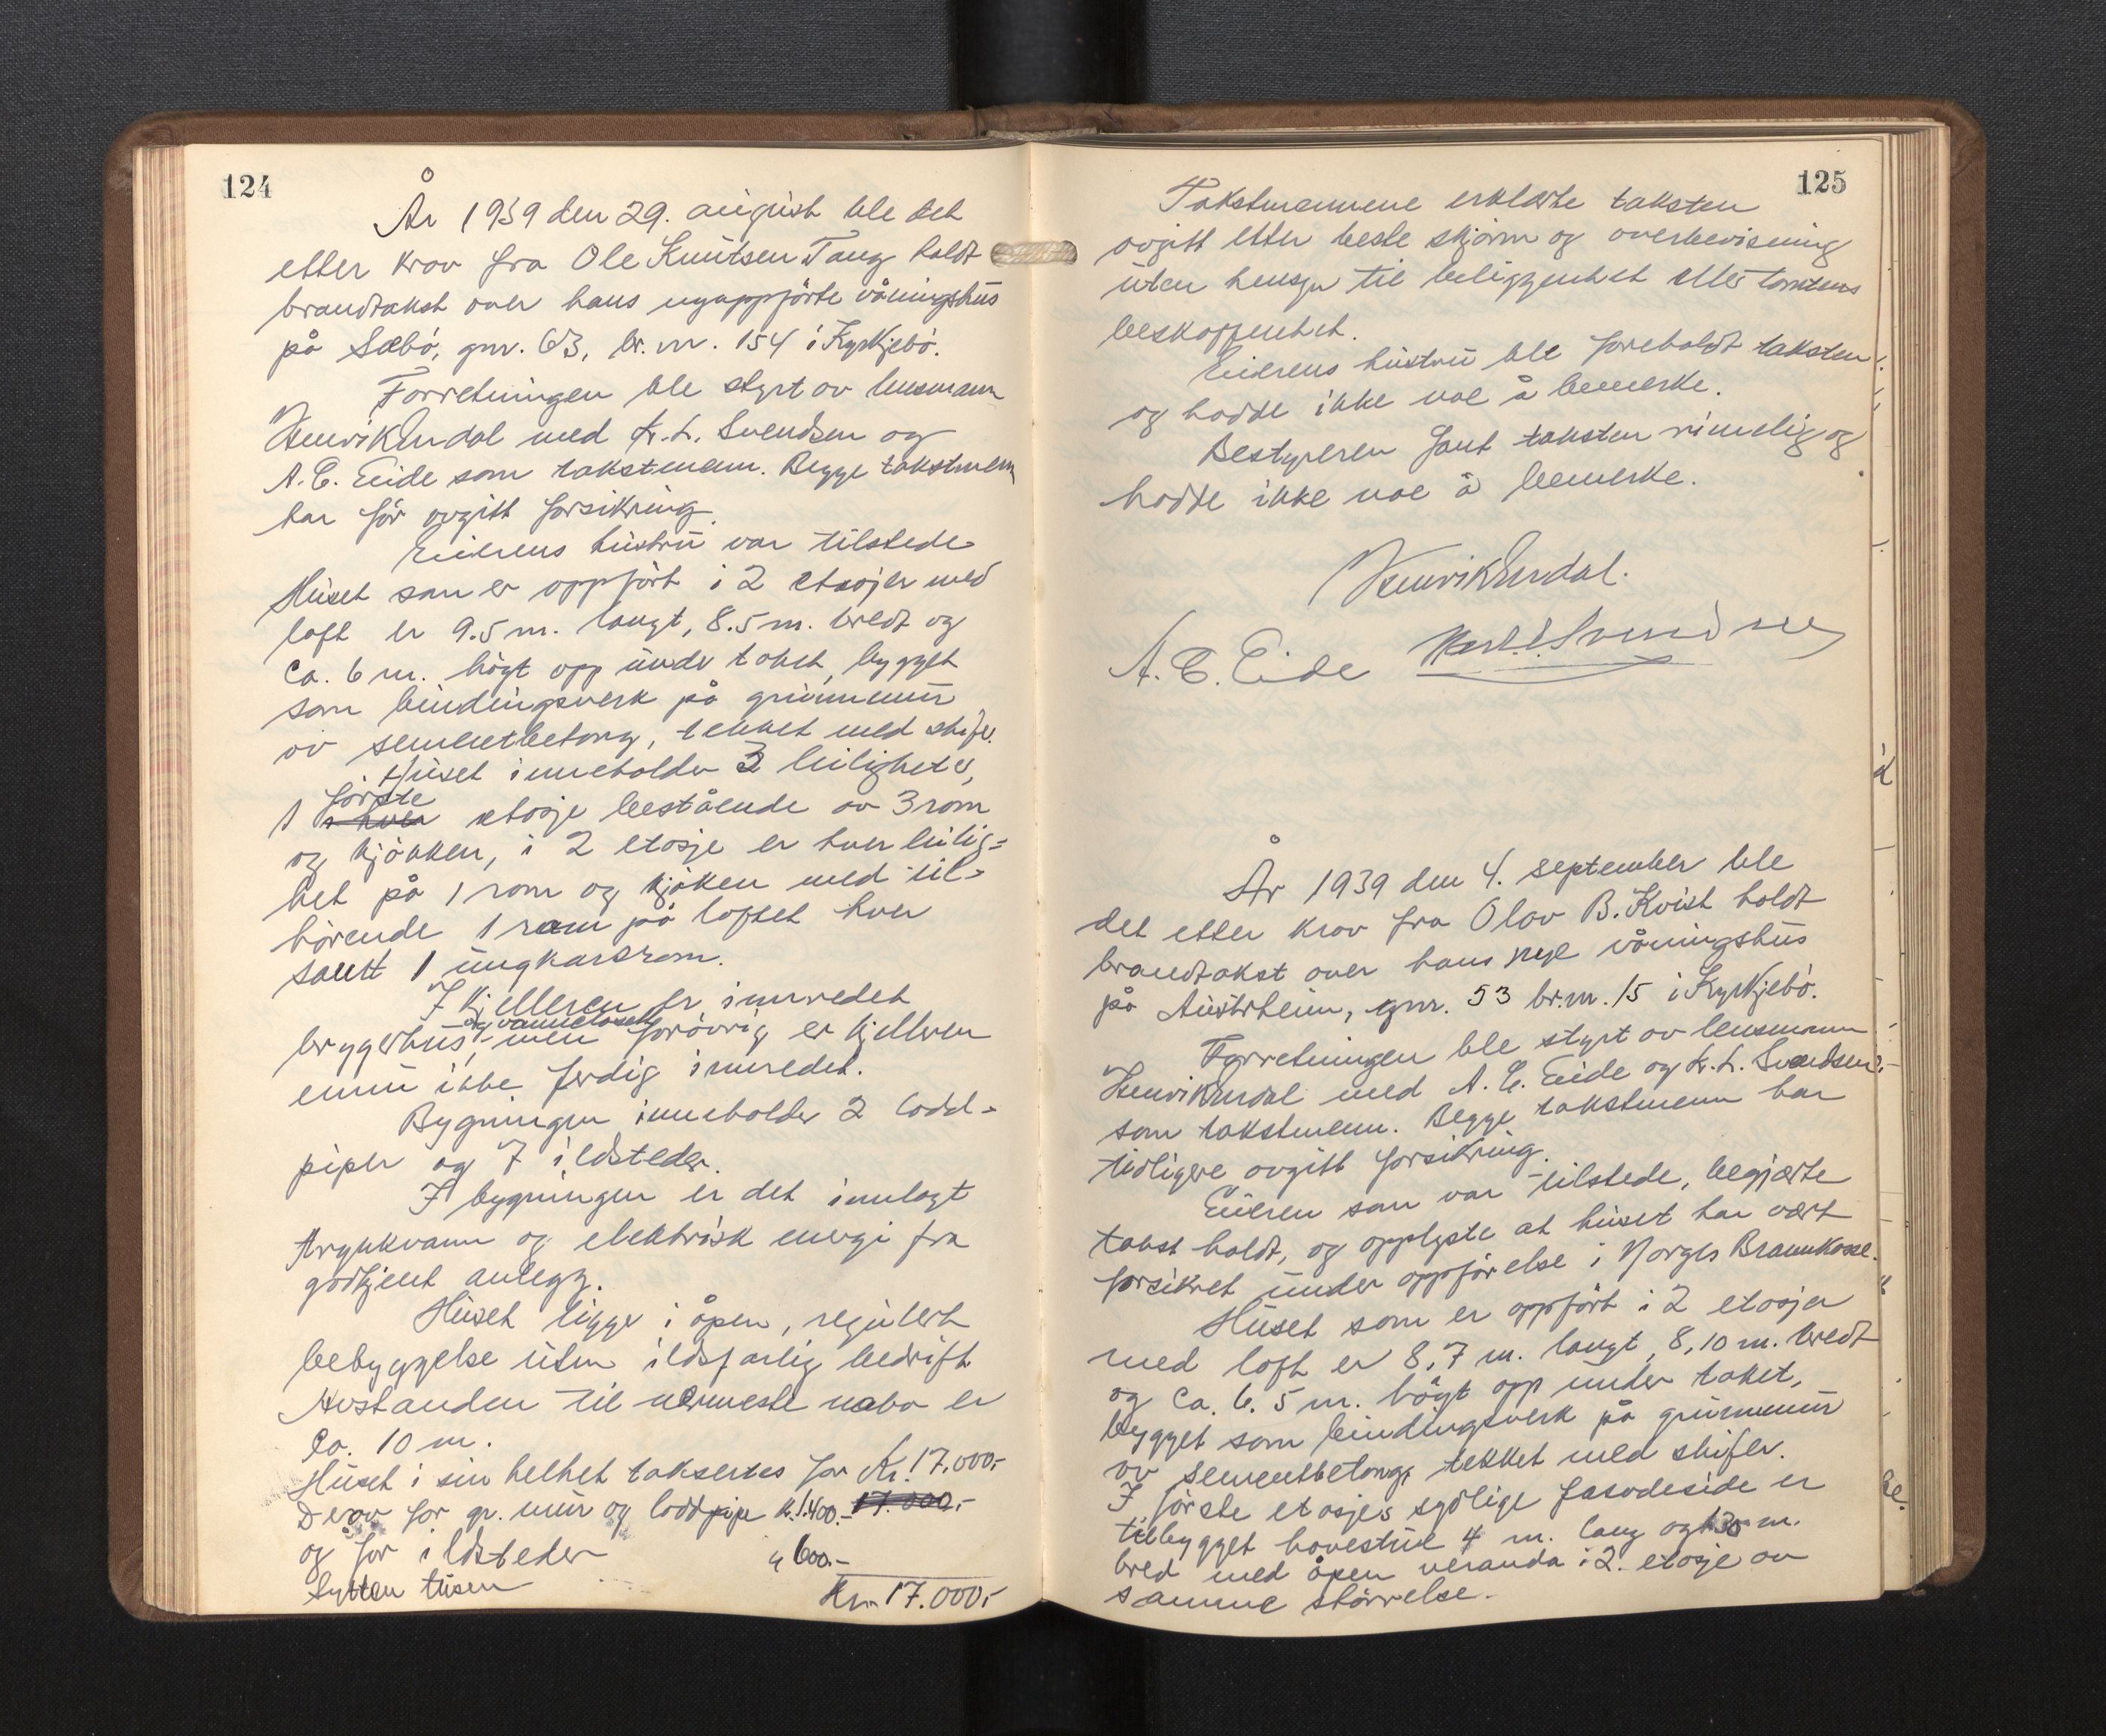 124
År 1939 den 29. august ble det
etter krav fra Ole Knutsen Taug holdt
brandtakst over hans nyoppførte våningshus
på Sæbø, gnr. 63, br.nr. 154 i Kyrkjebø.
Forretningen ble styrt av lensmann
Henrik Endal med K. L. Svendsen og
A. C. Eide som takstmenn. Begge takstmenn
har før avgitt forsikring.
Eierens hustru var tilstede
Huset som er oppført i 2 etasjer med
loft er 9.5 m. langt, 8.5 m. bredt og
ca. 6 m. høgt opp under taket, bygget
som bindingsverk på grunnmur
av sementbetong, tekket med skifer.
Huset inneholder 3 leiligheter,
første
1 i hver etasje bestående av 3 rom
og kjøkken, i 2 etasje er hver leilig-
het på 1 rom og kjøken med til-
hørende 1 rom på loftet hver
samt 1 ungkarsrom.
I kjelleren er innredet
og vannclosett
bryggerhus, men forøvrig er kjelleren
ennu ikke ferdig innredet.
Bygningen inneholder 2 lodd-
piper og 7 ildsteder.
I bygningen er det innlagt
trykkvann og elektrisk energi fra
godkjent anlegg.
Huset ligger i åpen, regulert
bebyggelse uten ildsfarlig bedrift
Avstanden til nærmeste nabo er
ca. 10 m.
Huset i sin helhet takseres for Kr. 17.000,-
Derav for gr. mur og loddpipe k. 1.400.- 17.000,-
og for ildsteder " 600.-
Sytten tusen Kr. 17.000,-
125
Takstmennene erklærte taksten
avgitt etter beste skjønn og overbevisning
uten hensyn til beliggenhet eller tomtens
beskaffenhet.
Eierens hustru ble foreholdt taksten
og hadde ikke noe å bemerke.
Bestyreren fant taksten rimelig og
hadde ikke noe å bemerke.
Henrik Endal.
A. C. Eide Karl L. Svendsen
År 1939 den 4. september ble
det etter krav fra Olav B. Kvist holdt
brandtakst over hans nye våningshus
på Austrheim, gnr. 53 br.nr. 15 i Kyrkjebø.
Forretningen ble styrt av lensmann
Henrik Endal med A. C. Eide og K. L. Svendsen
som takstmenn. Begge takstmenn har
tidligere avgitt forsikring.
Eieren som var tilstede, begjærte
takst holdt, og opplyste at huset har vært
forsikret under oppførelse i Norges Brannkasse.
Huset som er oppført i 2 etasjer
med loft er 8,7 m. langt, 8,10 m. bredt
og ca. 6.5 m. høgt opp under taket,
bygget som bindingsverk på grunnmur
av sementbetong, tekket med skifer.
I første etasjes sydlige fasadeside er
tilbygget havestue 4 m. lang og 1,30 m.
bred med åpen veranda i 2. etasje av
samme størrelse.